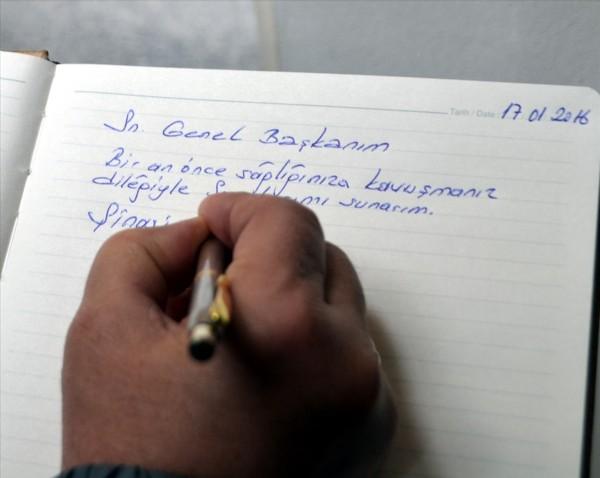 Tarih / Date: 17.01.2016
Sn. Genel Başkanım
Bir an önce sağlığınıza kavuşmanız
dileğiyle sunarım.